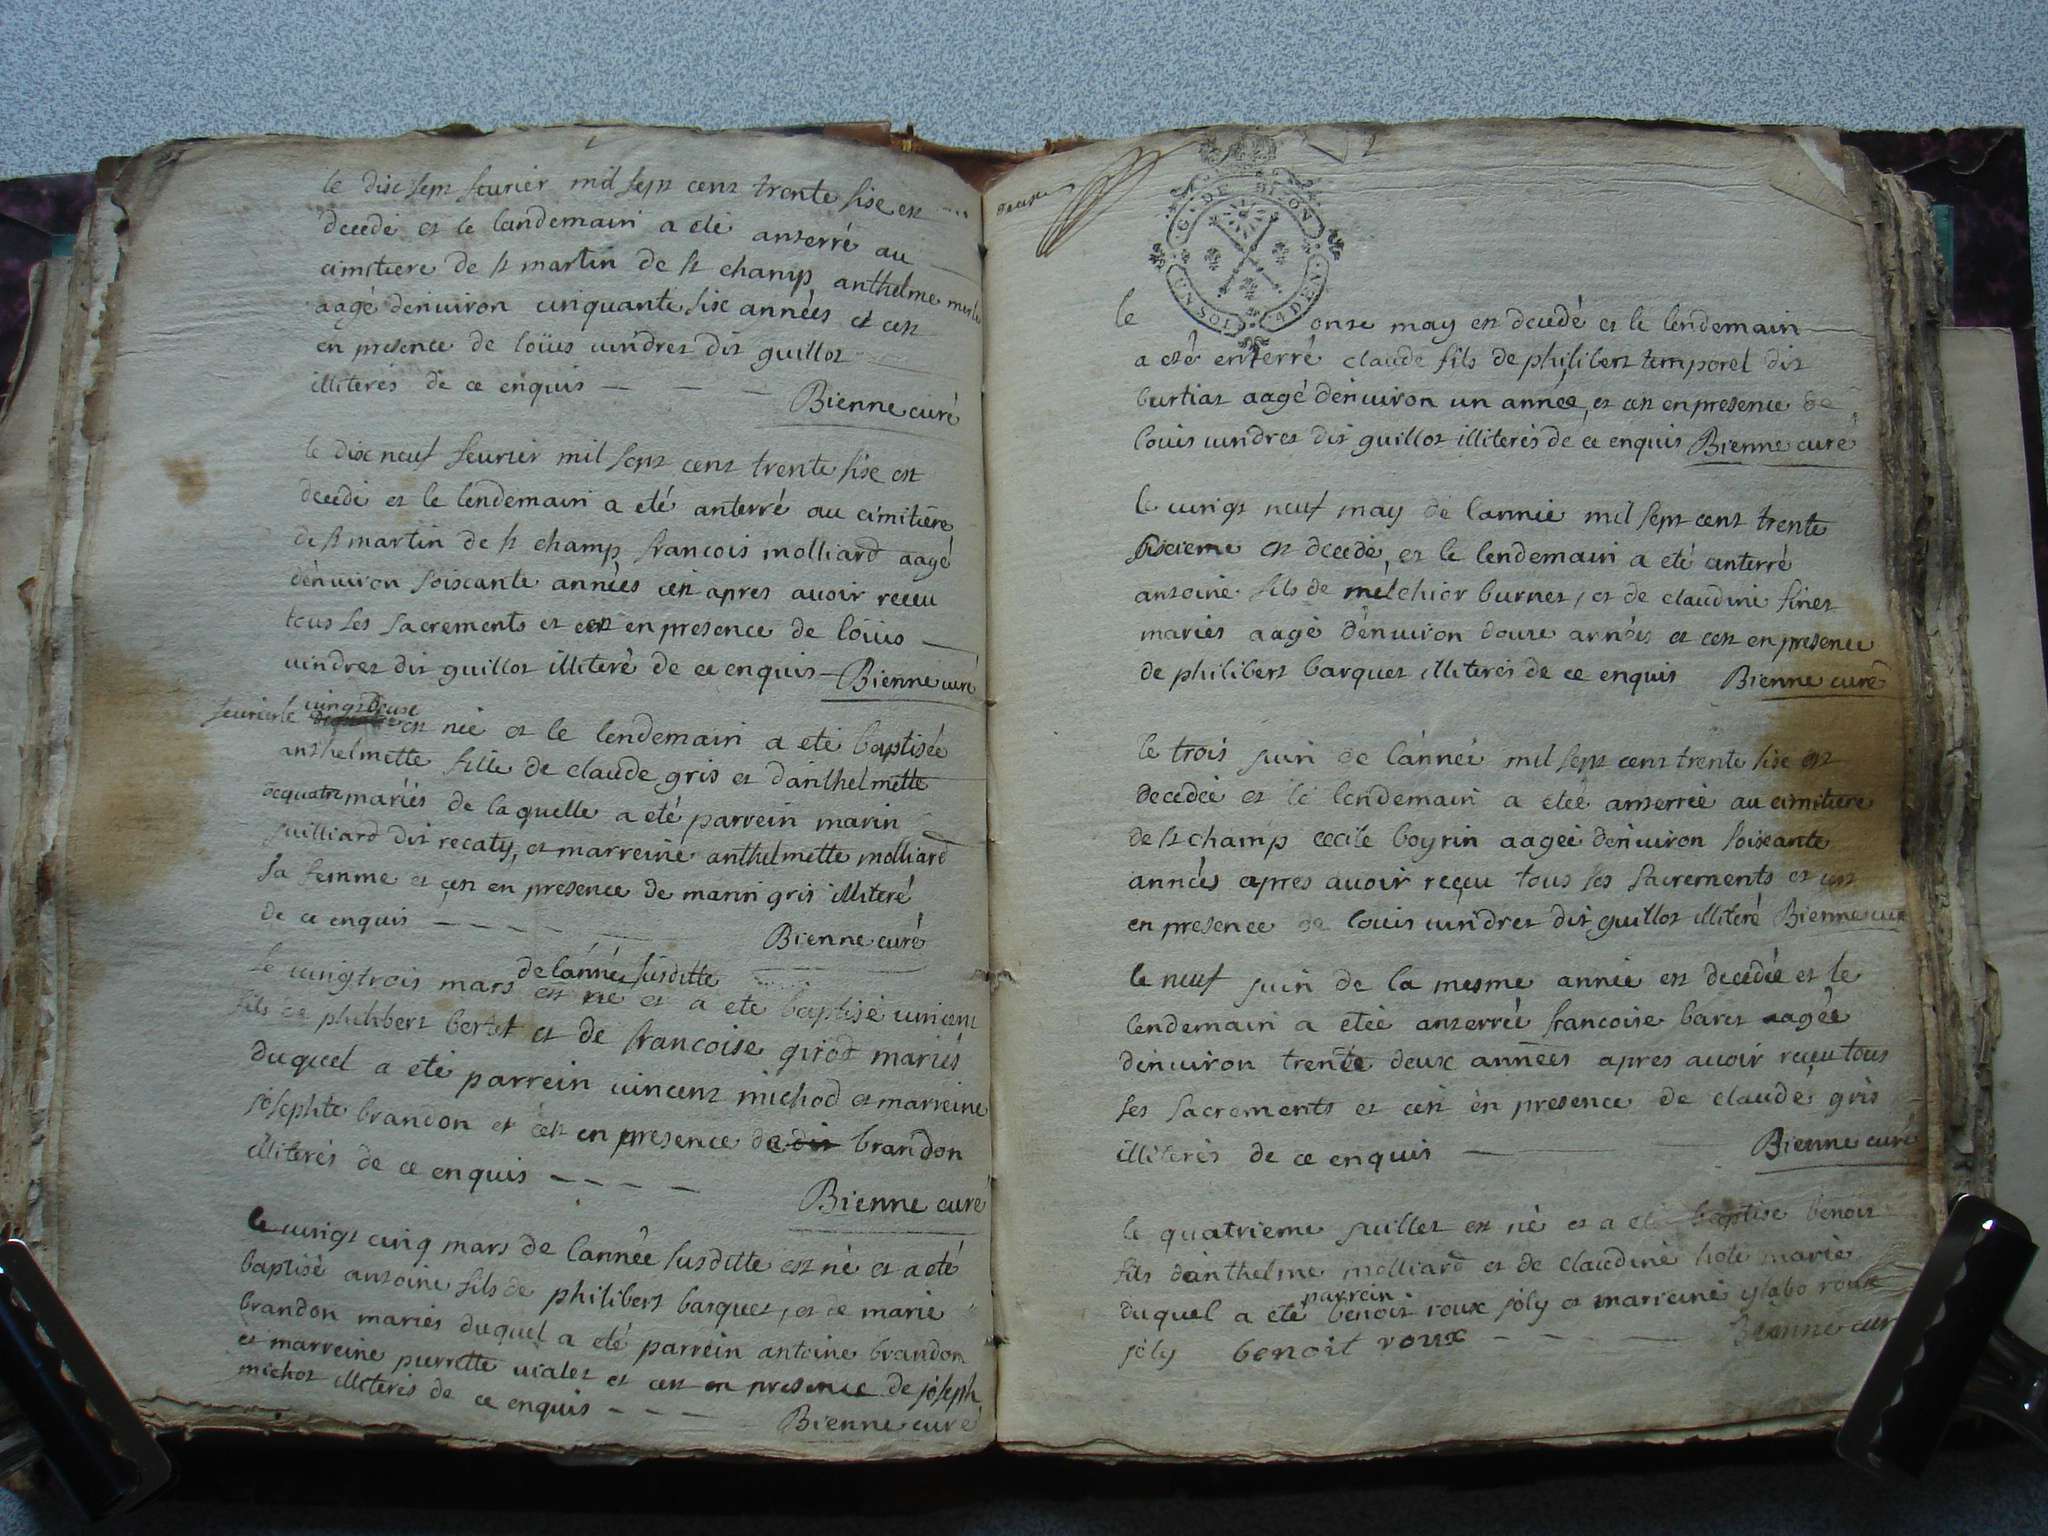 le dix sept feurier mil sept cent trente sixe est
decedé et le landemain a eté anterré au
cimitiere de st martin de st champ anthelme
aagé denuiron cinquante sixe années et cest
en presence de loüis uindret dit guillot
illiterés de ce enquis
Bienne curé
le dixneuf feurier mil sept cent trente sixe est
decedé et le lendemain a eté anterré au cimitiere
de st martin de st champ francois molliard aagé
dénuiron soixante années cest apres auoir receu
tous ses sacrements et cest en presence de loüis
uindret dit guillot illiteré de ce enquis Bienne curé
feurier le uingt deuxe est née et le lendemain a eté baptisée
anthelmette fille de claude gris et danthelmette
decquatre mariés de laquelle a eté parrein marin
juilliard dit recaty, et marreine anthelmette molliard
sa femme et cest en presence de marin gris illiteré
de ce enquis
Bienne curé
le uingtrois mars de lánnée susditte est né et a eté baptisé uincent
fils de philibert bertet et de francoise girod mariés
duquel a eté parrein uincent michod et marreine
josephte brandon et cest en presence de dit brandon
illiterés de ce enquis
Bienne curé
le uingt cinq mars de lánnée susditte est né et a eté
baptisé antoine fils de philibert barquet, et de marie
brandon mariés duquel a eté parrein antoine brandon
et marreine pierrette uialet et cest en presence de joseph
michot illiterés de ce enquis
Bienne curé
deuxe
G. DE DIJON
le onze may est decedé et le lendemain
a eté enterré claude fils de philibert temporel dit
burtiat aagé dénuiron un année, et cest en presence de
louis uindret dit guillot illiterés de ce enquis Bienne curé
le uingt neuf may de lannée mil sept cent trente
sixieme est decedé, et le lendemain a eté anterré
antoine fils de melchior burnet, et de claudine finet
mariés aagé dénuiron douze années et cest en presence
de philibert barquet illiterés de ce enquis Bienne curé
le trois juin de lánnée mil sept cent trente sixe est
decedée et le lendemain a etée anterrée au cimitiere
de st champ cecile boyrin aagée dénuiron soixante
années apres auoir reçeu tous ses sacrements et cest
en presence de louis uindret dit guillot illiteré Bienne curé
le neuf juin de la mesme année est decedée et le
lendemain a etée anterrée francoise baret aagée
dénuiron trente deux années apres auoir receu tous
ses sacrements et cest en presence de claude gris
illiterés de ce enquis
Bienne curé
le quatrieme juillet est né et a eté baptise benoit
fils dánthelme molliard et de claudine mariés
duquel a eté parrein benoit roux joly et marreine roux
joly benoit roux Bienne curé